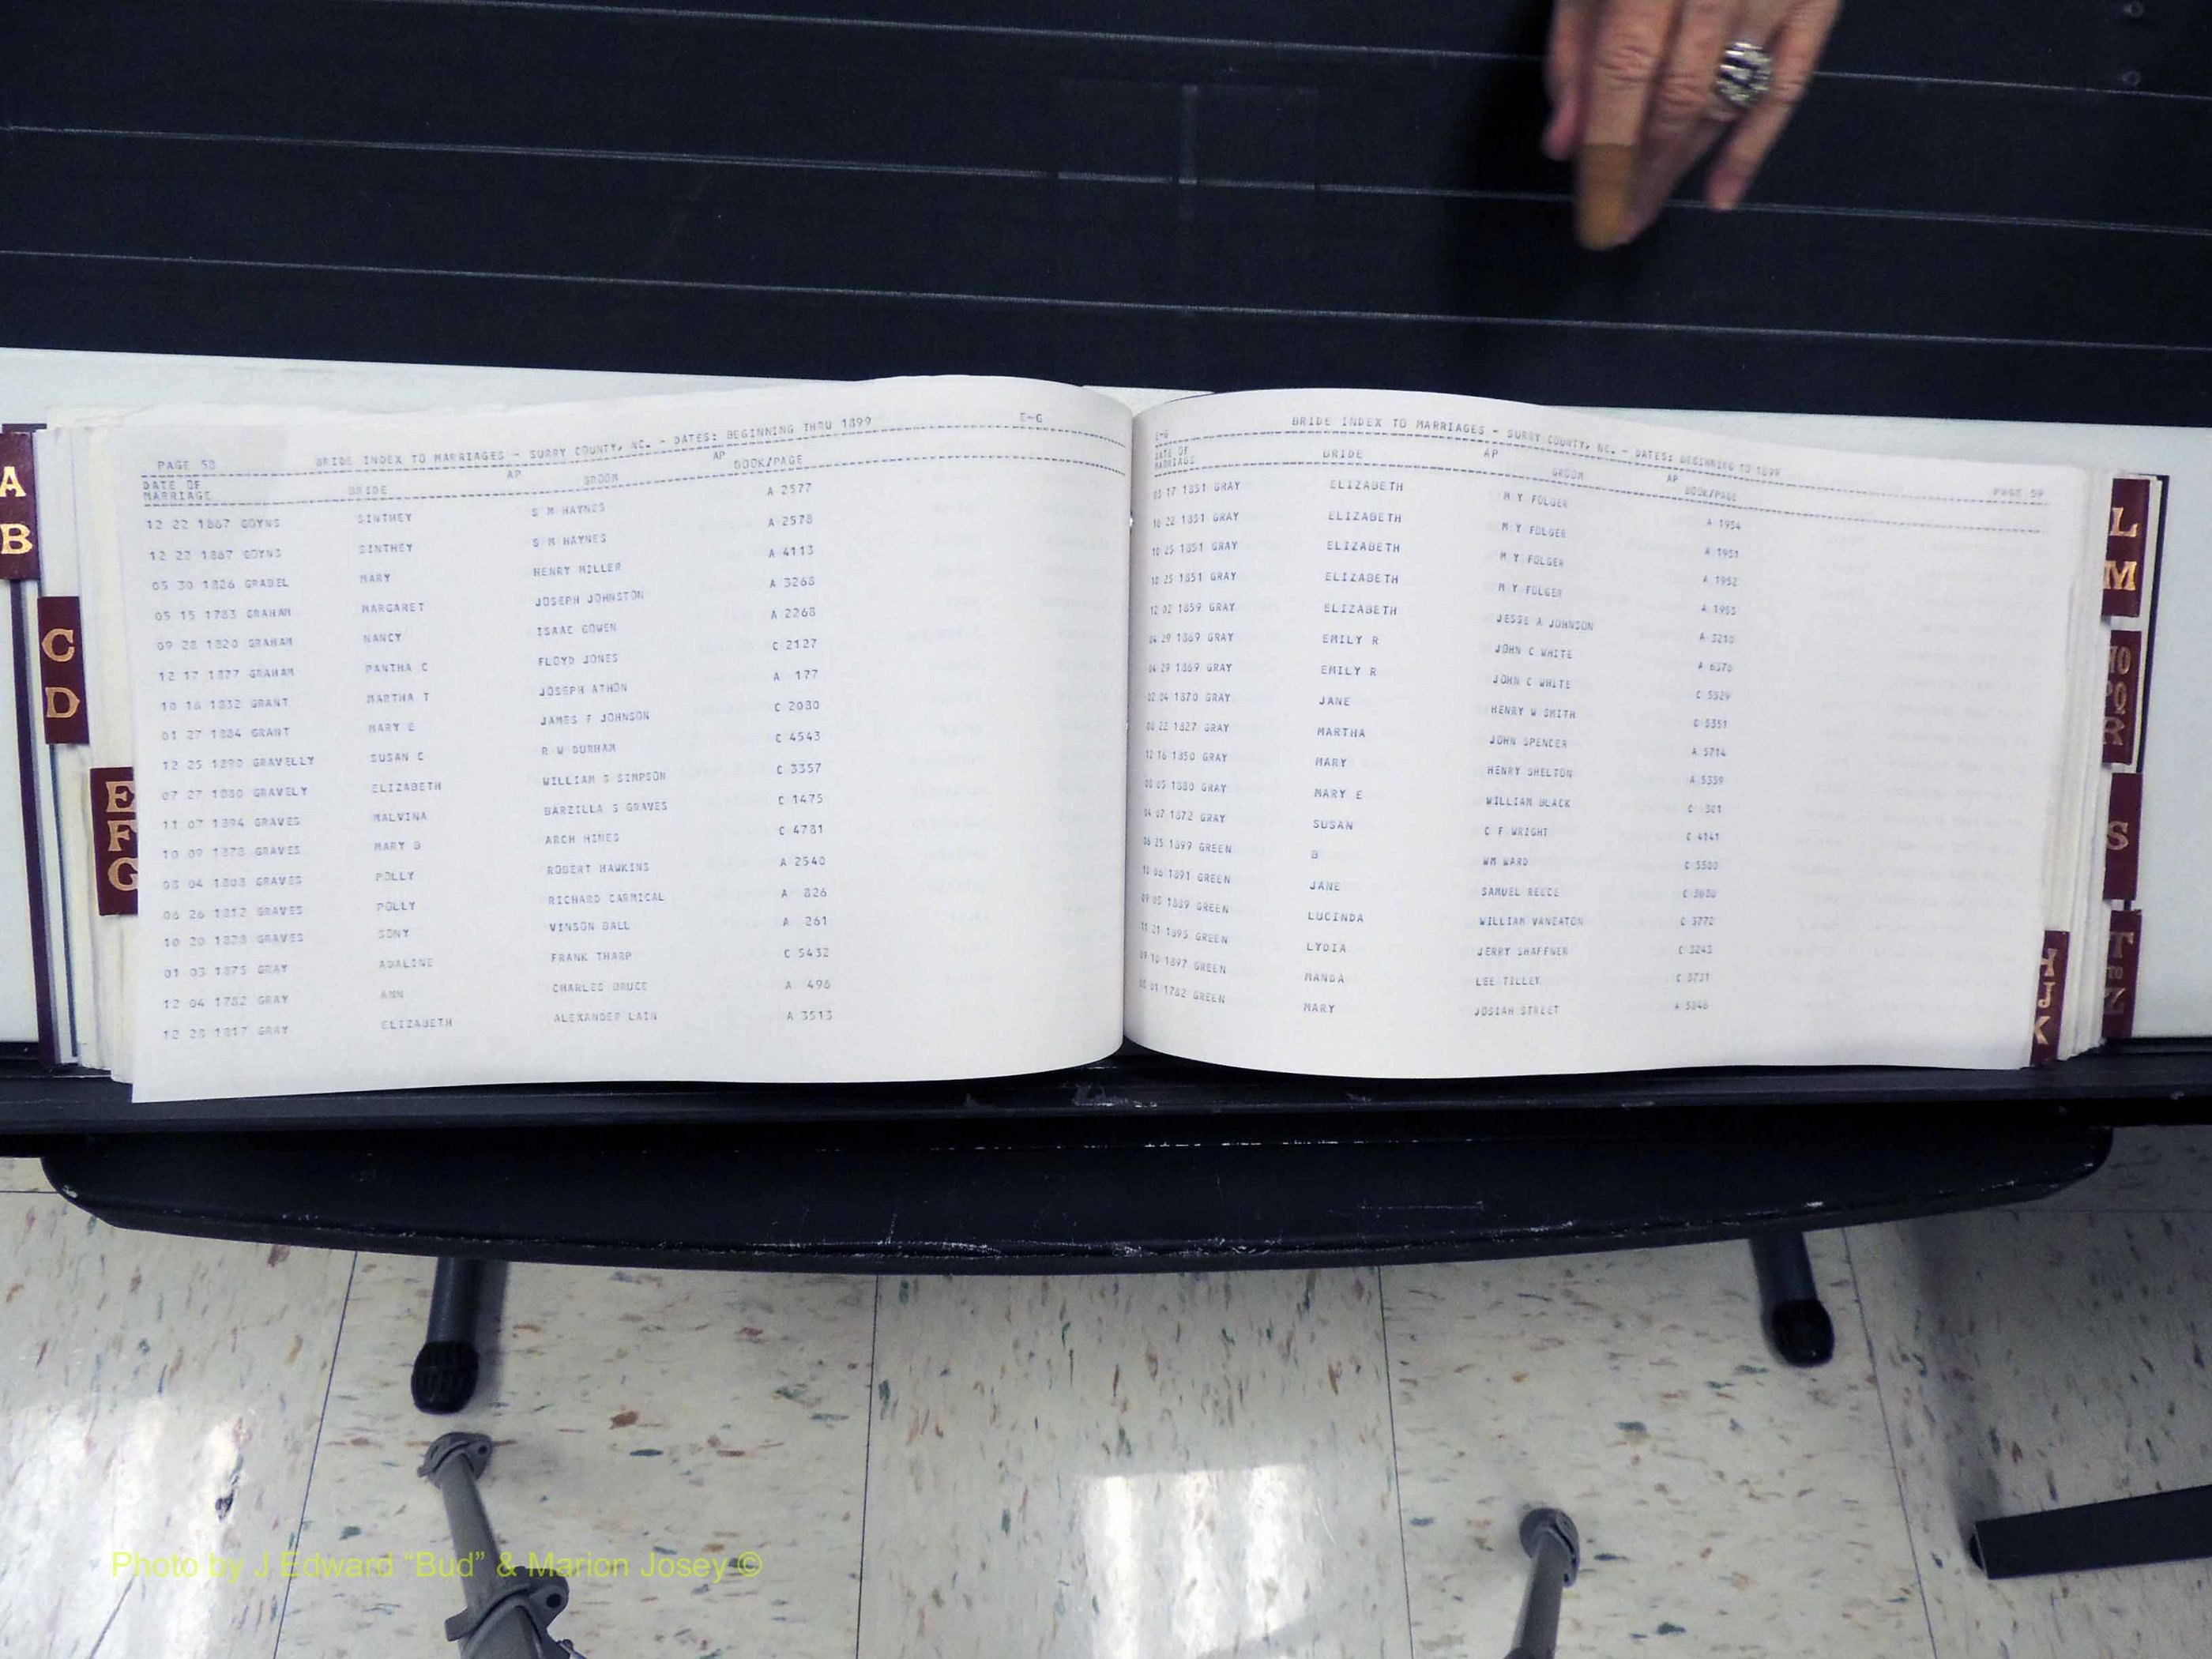 A
B
C
D
E
F
G
PAGE 58 BRIDE INDEX TO MARRIAGES - SURRY COUNTY, NC. - DATES: BEGINNING THRU 1899 E-G
DATE OF MARRIAGE BRIDE AP GROOM AP BOOK/PAGE
12 22 1867 GOYNS SINTHEY S M HAYNES A 2577
12 22 1867 GOYNS SINTHEY S M HAYNES A 2578
05 30 1826 GRABEL MARY HENRY MILLER A 4113
05 15 1783 GRAHAM MARGARET JOSEPH JOHNSTON A 3268
09 28 1820 GRAHAM NANCY ISAAC GOWEN A 2268
12 17 1877 GRAHAM PANTHA C FLOYD JONES C 2127
10 16 1832 GRANT MARTHA T JOSEPH ATHON A 177
01 27 1884 GRANT MARY E JAMES F JOHNSON C 2080
12 25 1890 GRAVELLY SUSAN C R W DURHAM C 4543
07 27 1880 GRAVELY ELIZABETH WILLIAM S SIMPSON C 3357
11 07 1894 GRAVES MALVINA BARZILLA S GRAVES C 1475
10 09 1878 GRAVES MARY B ARCH HINES C 4781
08 04 1808 GRAVES POLLY ROBERT HAWKINS A 2540
06 26 1812 GRAVES POLLY RICHARD CARMICAL A 826
10 20 1828 GRAVES SONY VINSON BALL A 261
01 03 1875 GRAY ADALINE FRANK THARP C 5432
12 04 1782 GRAY ANN CHARLES BRUCE A 496
12 28 1817 GRAY ELIZABETH ALEXANDER LAIN A 3513
E-G BRIDE INDEX TO MARRIAGES - SURRY COUNTY, NC. - DATES: BEGINNING TO 1899 PAGE 59
DATE OF MARRIAGE BRIDE AP GROOM AP BOOK/PAGE
17 1851 GRAY ELIZABETH M Y FOLGER A 1954
10 22 1851 GRAY ELIZABETH M Y FOLGER A 1951
10 25 1851 GRAY ELIZABETH M Y FOLGER A 1952
10 25 1851 GRAY ELIZABETH M Y FOLGER A 1953
12 02 1859 GRAY ELIZABETH JESSE A JOHNSON A 3210
04 29 1869 GRAY EMILY R JOHN C WHITE A 6370
04 29 1869 GRAY EMILY R JOHN C WHITE C 5529
02 04 1870 GRAY JANE HENRY W SMITH C 5351
08 22 1827 GRAY MARTHA JOHN SPENCER A 5714
12 16 1850 GRAY MARY HENRY SHELTON A 5359
08 05 1880 GRAY MARY E WILLIAM BLACK C 381
04 07 1872 GRAY SUSAN C F WRIGHT C 4141
06 25 1899 GREEN B WM WARD C 5500
10 06 1891 GREEN JANE SAMUEL REECE C
09 05 1889 GREEN LUCINDA WILLIAM VANEATON C 3772
11 21 1895 GREEN LYDIA JERRY SHAFFNER C 3243
09 10 1897 GREEN MANDA LEE TILLEY C 3731
01 1782 GREEN MARY JOSIAH STREET A 5846
L
M
R
S
T
TO
Z
Photo by J Edward “Bud” & Marion Josey ©